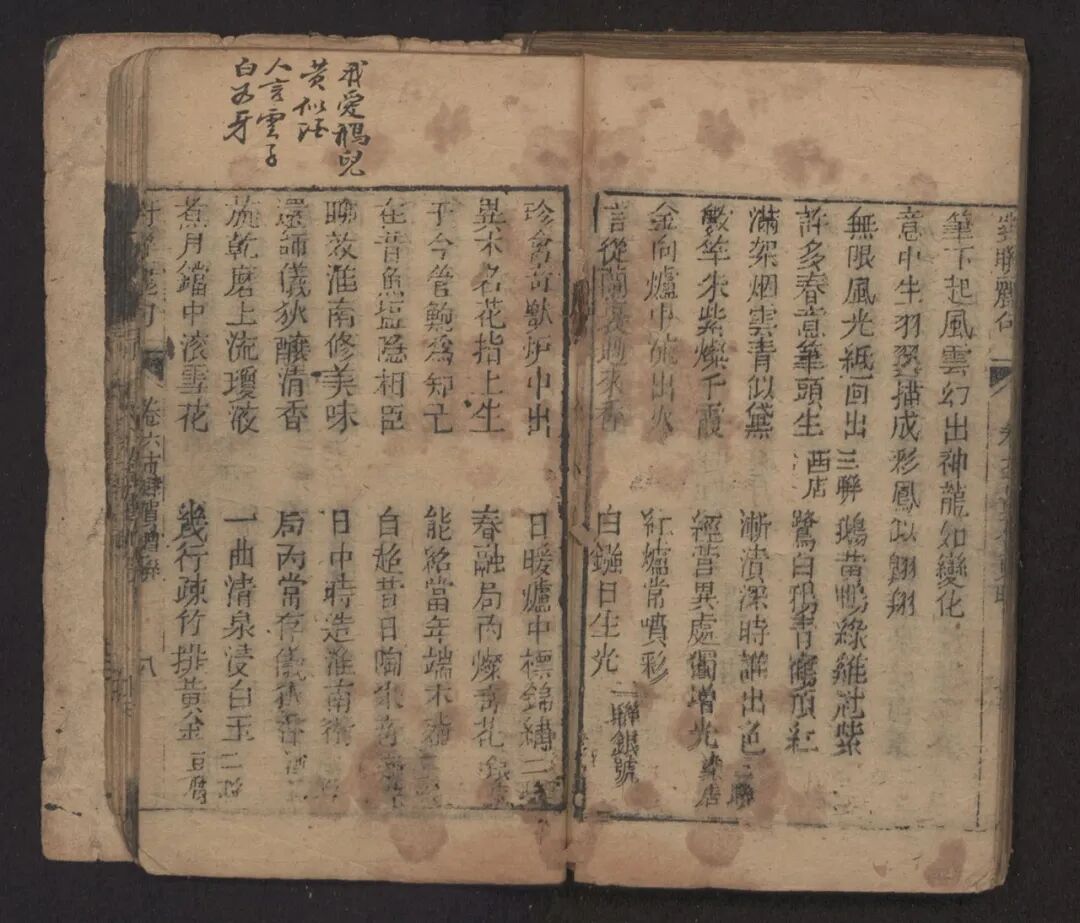 對聯麗句
筆下起風雲幻出神龍如變化
意中生羽翼描成彩鳳似翺翔
無限風光紙面出 三聯 鵝黃鴨綠雞冠紫
許多春意筆頭生 西店 鷺白鴉青鶴頂紅
滿架烟雲青似黛 漸漬深時誰出色 二聯
數竿朱紫燦千霞 經营異處獨增光 染店
金向爐中能出火 紅爐常噴彩
言從蘭 地來香 白鏹日生光 二聯銀號
我愛鵝兒
黃似
人言雲子
白 牙
珍禽奇獸炉中出 日暖爐中標錦綉 二聯
異木名花指上生 春融局內燦奇花
于今管鮑爲知己 能 當年端木
在昔魚塩隐相臣 自超昔日陶朱
聊效淮南修美味 日中時造淮南術
還師儀狄釀清香 局內常存儀狄
旋乾磨上流瓊液 一曲清泉浸白玉 二聯
煮月鐺中滚雪花 幾行疎竹排黃金 豆腐
卷六 八